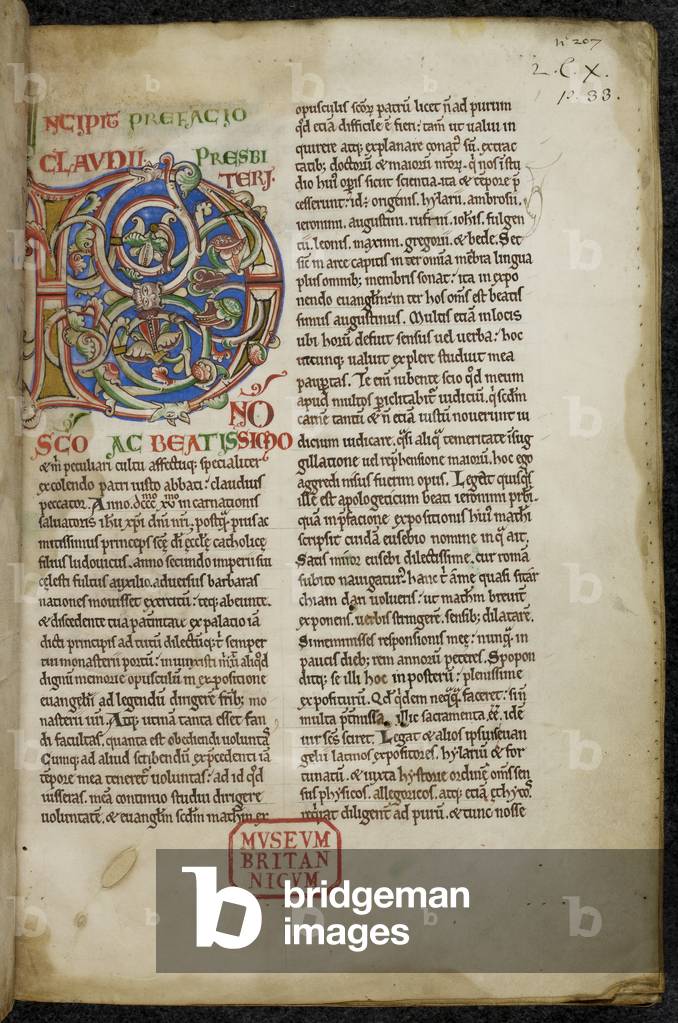 nº 207
2. C. X.
p. 33.
INCIPIT PREFACIO
CLAVDII PRESBI
TERI.
DNO
SCO AC BEATISSIMO
& m peculiari cultu affectuq; specialiter
excolendo patri iusto abbati. claudius
peccator. Anno. dccc. xv. in carnationis
saluatoris ihu xpi dni nri, postq prius ac
mitissimus princeps sce di eccle catholice
filius ludouicus. anno secundo imperii sui
celesti fultus auxilio. aduersus barbaras
nationes mouisset exercitu: teq; abeunte.
& discedente ex palacio ia
dicti principis ad tuum semper
tui monasterii portu: iniunxisti aliqd
dignu memorie opusculu in expositione
euangelii ad legendu dirigere frib; mo
nasterii tui. Atq; utinam tanta esset fan
di facultas, quanta est obediendi uolunta
Cumq; ad aliud scribendu ia
tepore mea teneret uoluntas: ad id qd
iusseras, mea continuo studui dirigere
uoluntate. & euangliu scdm math ex
opusculis scor patru licet n ad purum
qd etia difficile e fieri: tam ut ualui in
quirere atq; explanare conat su. ex trac
tatib; doctoru & maioru nror. q nos istu
dio hui opis sicut scientia. ita & tepore p
cesserunt: id; origenis. hylarii. ambrosii.
ieronimi. augustini. rufini. iohis. fulgen
tii. leonis. maximi. gregorii. & bede. Set
sic in arce capitis inter omia mebra lingua
plus omnib; membris sonat: ita in expo
nendo euanglm inter hos oms est beatis
simus augustinus. Multis etia in locis
ubi horu defuit sensus uel uerba: hoc
utcunq; ualuit explere studuit mea
paupertas. Te em iubente scio qd meum
apud multos piclitabit iudiciu. qi scdm
carne tantu & n etia iustu nouerunt iu
dicium iudicare. qsi aliq temeritate & sug
gillatione uel rephensione maioru. hoc ego
aggredi nisus fuerim opus. Legat quisqs
ille est apologeticum beati ieronimi prbi.
qua in pfacione expositionis hui mathi
scripsit cuidam eusebio nomine in q ait.
Satis miror eusebi dilectissime. cur roma
subito nauigatur. hanc t a me quasi sitar
chiam dari uolueris: ut matheum breuit
exponens. uerbis stringere. sensib; dilatare.
Si meminisses responsionis mee: nunq in
paucis dieb; rem annoru peteres. Spopon
ditq; se illi hoc in posteru: plenissime
expositurum. Qd qdem neqq faceret: si in
multa pmissa. illic sacramenta. ee. ide
uir scs sciret. Legat & alios ipsius euan
gelii latinos expositores. hylariu & for
tunatu. & iuxta hystorie ordine oms sen
sus physicos. allegoricos. atq; etia
reqrat diligent ad puru. & tunc nosse
MVSEVM
BRITAN
NICVM
bridgeman
images